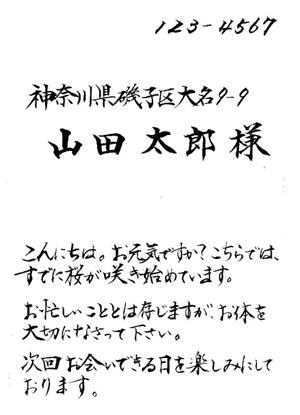 123-4567
神奈川県磯子区大名9-9
山田太郎様
こんにちは。お元気ですか?こちらでは、
すでに桜が咲き始めています。
お忙しいこととは存じますが、お体を
大切になさって下さい。
次回お会いできる日を楽しみにして
おります。